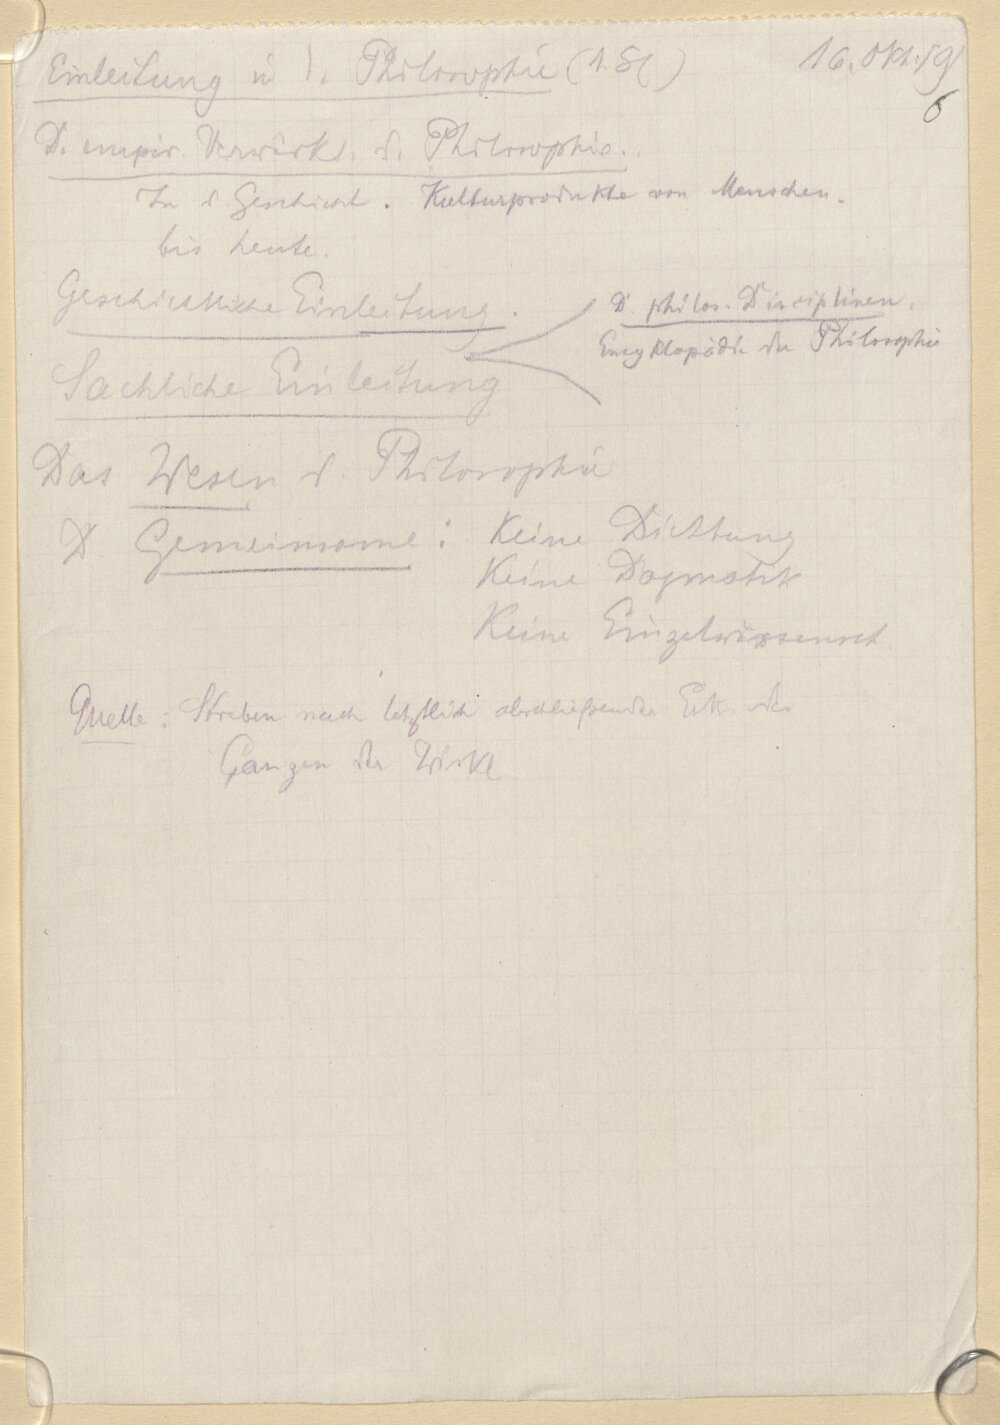 Einleitung in d. Philosophie (1. St) 16. Okt. 19
6
D. empir. Verwirkl. d. Philosophie.
In d. Geschicht. Kulturprodukte von Menschen.
bis heute.
Geschichtliche Einleitung.
D. philos. Disciplinen.
Encyklopädie der Philosophie
Sachliche Einleitung
Das Wesen d. Philosophie
D Gemeinsame: Keine Dichtung
Keine Dogmatik
Keine Einzelwissensch
Quelle: Streben nach letztlich abschließender Erk. des
Ganzen der Wirkl